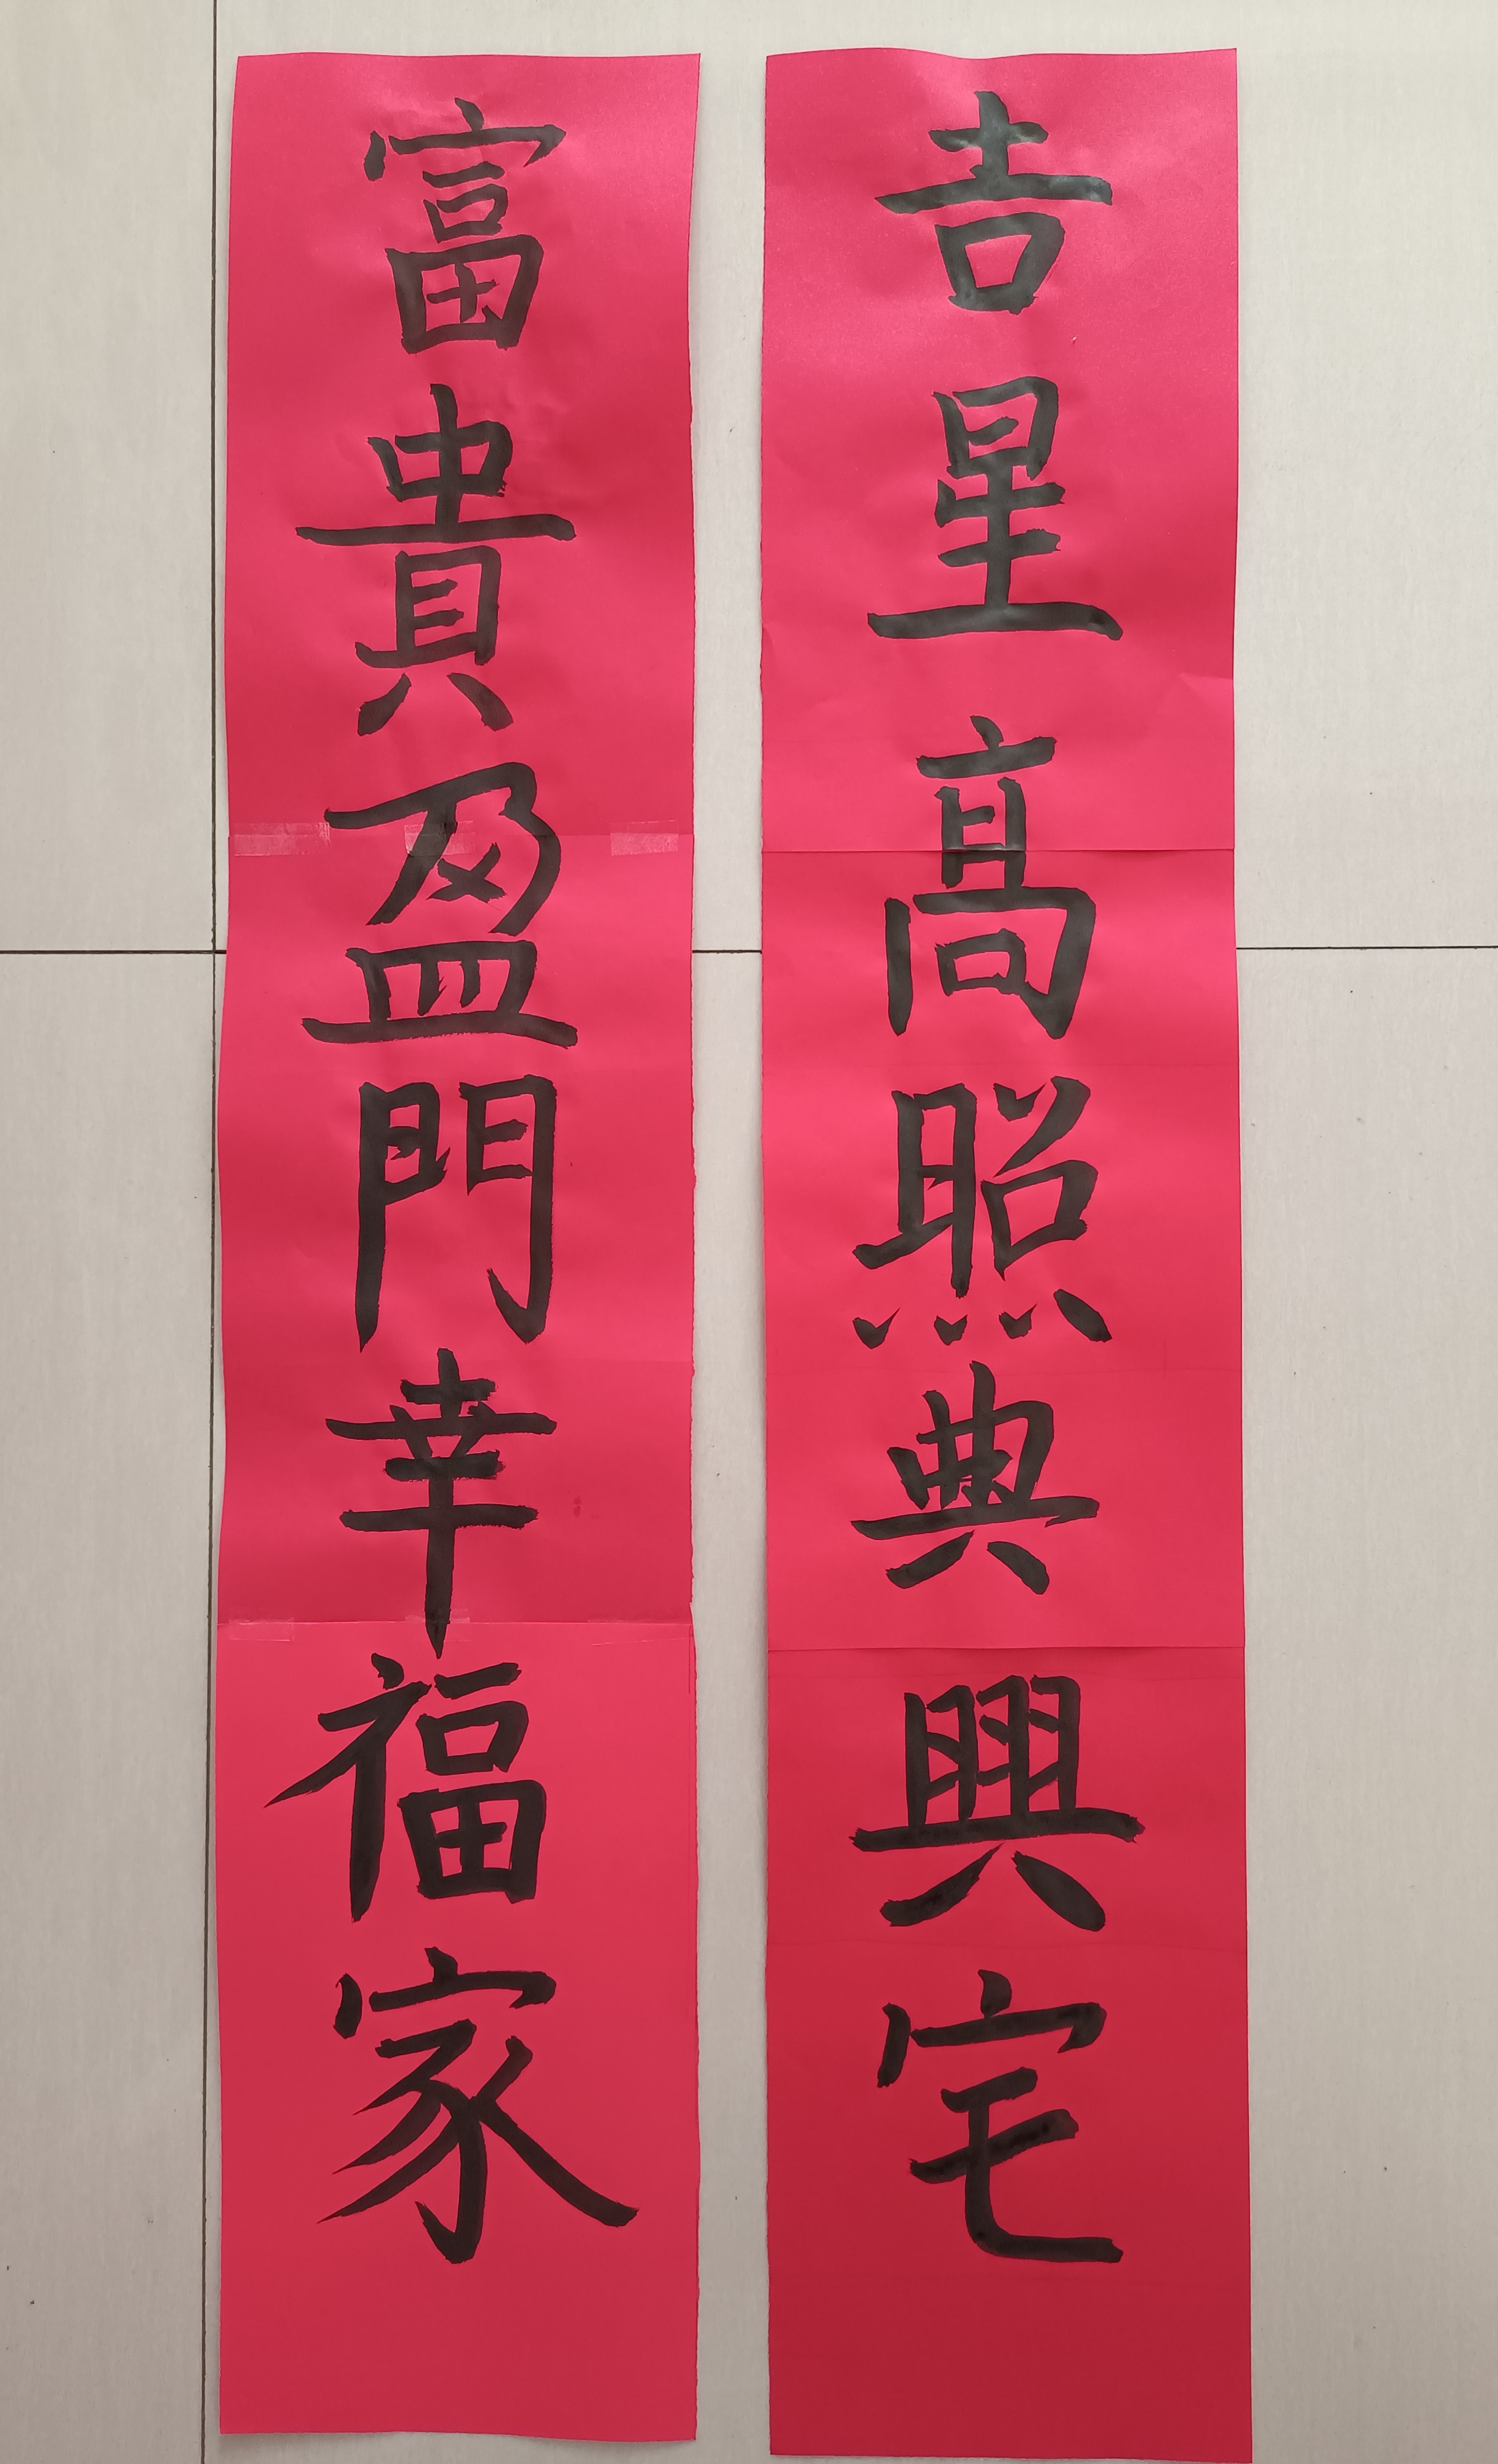 吉星高照典興宅
富貴盈門幸福家